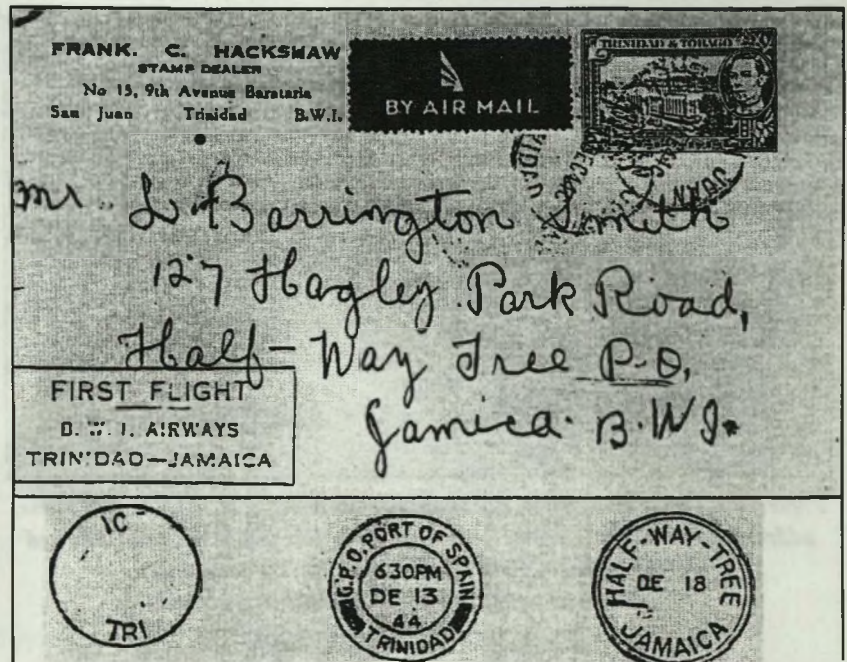 FRANK. C. HACKSHAW
STAMP DEALER
No 15, 9th Avenue Barataria
San Juan Trinidad B.W.I.
BY AIR MAIL
TRINIDAD & TOBAGO
Mr. L. Barrington Smith
127 Hagley Park Road,
Half-Way Tree P.O.
Jamica B.W.I.
FIRST FLIGHT
B. W. I. AIRWAYS
TRINIDAD—JAMAICA
IC
TRI
G.P.O. PORT OF SPAIN
630PM
DE 13
44
TRINIDAD
HALF-WAY-TREE
DE 18
JAMAICA